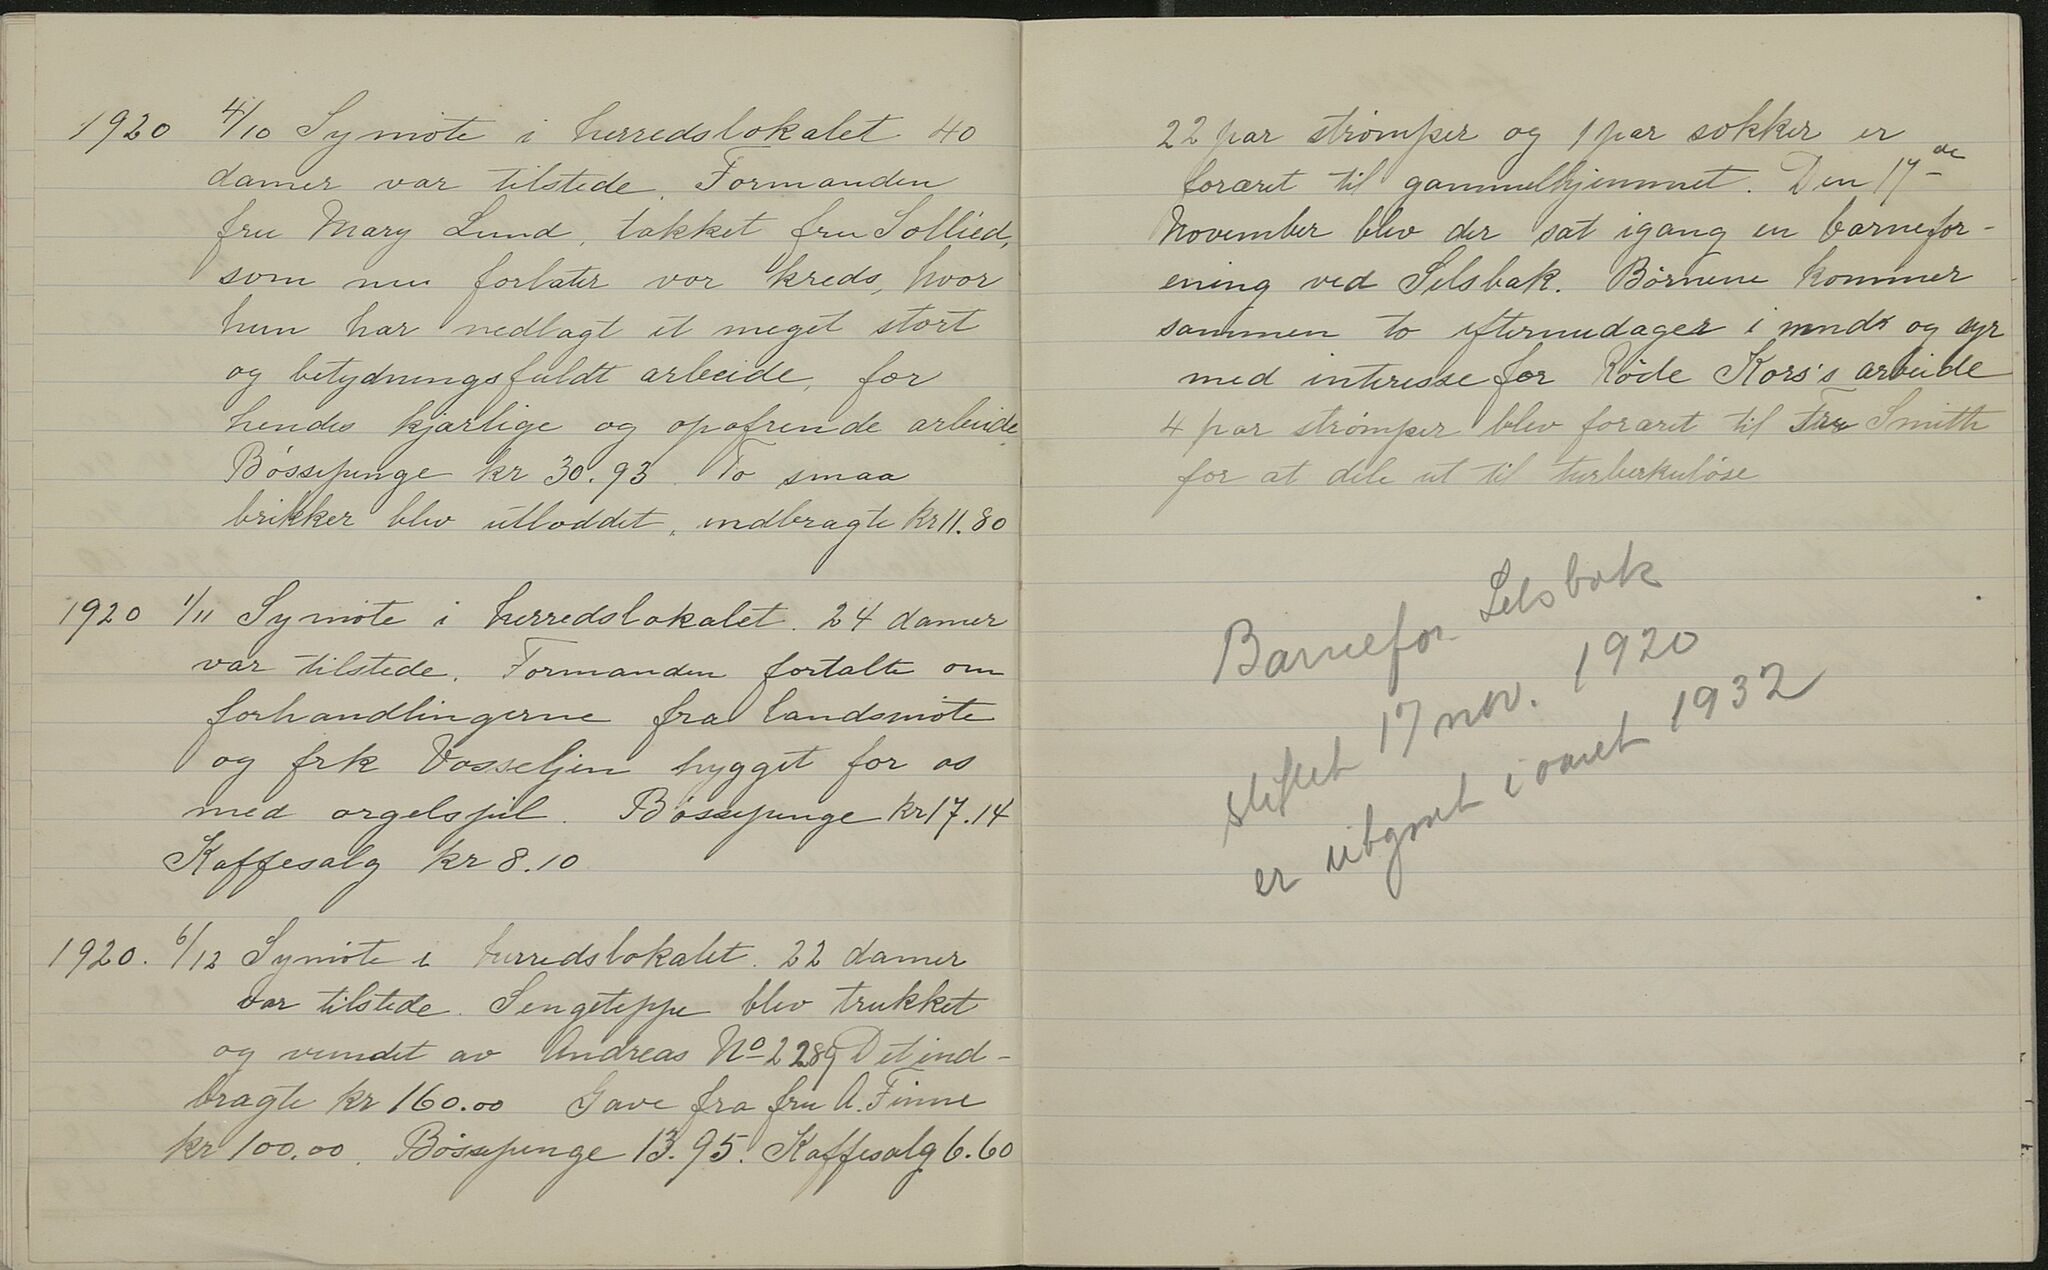 1920 4/10 Symöte i herredslokalet 40
damer var tilstede. Formanden
fru Mary Lund, takket fru Sollied,
som nu forlater vor kreds, hvor
hun har nedlagt et meget stort
og betydningsfuldt arbeide, for
hendes kjærlige og opofrende arbeide.
Bössepenge kr 30.93. To smaa
brikker blev utloddet, indbragte kr 11.80
1920 1/11 Symöte i herredslokalet. 24 damer
var tilstede. Formanden fortalte om
forhandlingerne fra landsmöte
og frk Vasseljen hygget for os
med orgelspil. Bössepenge kr 17.14
Kaffesalg kr 8.10
1920. 6/12 Symöte i herredslokalet. 22 damer
var tilstede. Sengeteppe blev trukket
og vundet av Andreas No 2289 Det ind-
bragte kr 160.00 Gave fra fru A. Finne
kr 100.00. Bössepenge 13.95. Kaffesalg 6.60
22 par strömper og 1 par sokker er
foræret til gammelhjemmet. Den 17de
November blev der sat igang en barnefor-
ening ved Selsbak. Børnene kommer
sammen to eftermidager i mndr og syr
med interesse for Røde Kors's arbeide
4 par strömper blev foræret til Fru Smith
for at dele ut til turberkulöse
Barnefor. Selsbak
stiftet 17 nov. 1920
er utgaat i aaret 1932